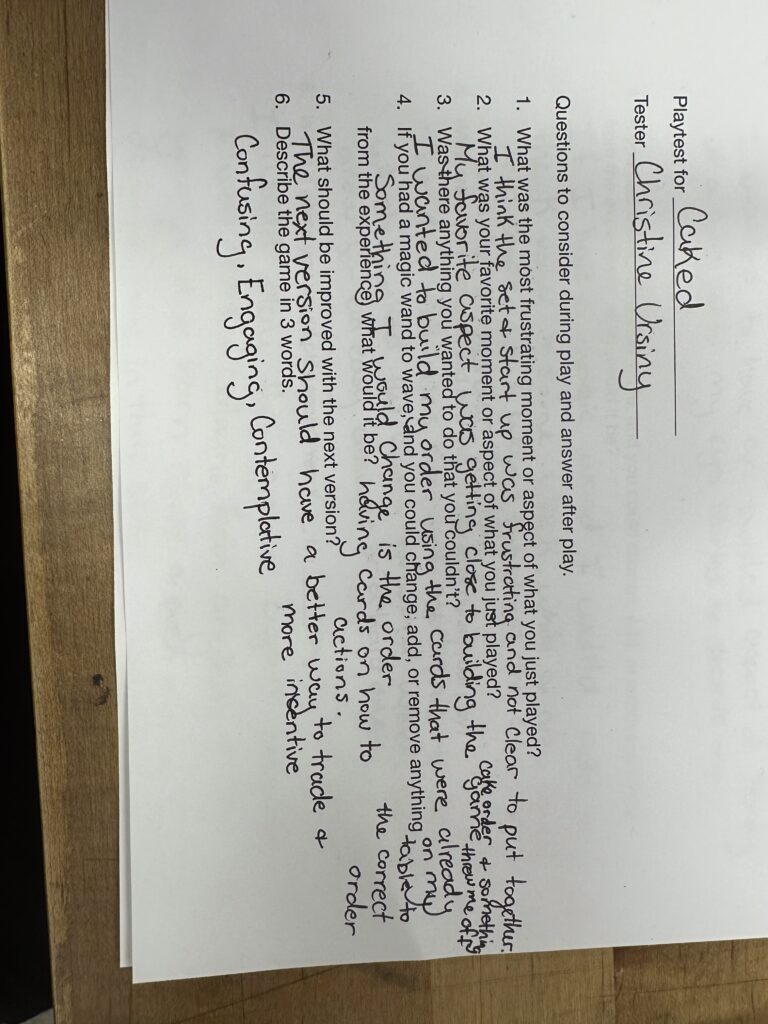 Playtest for Caked
Tester Christine Ursiny
Questions to consider during play and answer after play.
1. What was the most frustrating moment or aspect of what you just played?
I think the set & start up was frustrating and not clear to put together.
2. What was your favorite moment or aspect of what you just played?
My favorite aspect was getting close to building the cake order & something
game threw me off
3. Was there anything you wanted to do that you couldn't?
I wanted to build my order using the cards that were already
on my
4. If you had a magic wand to wave, and you could change, add, or remove anything
table to
Something I would change is the order the correct
from the experience, what would it be? having cards on how to order
actions.
5. What should be improved with the next version?
The next version should have a better way to trade &
6. Describe the game in 3 words. more incentive
Confusing, Engaging, Contemplative